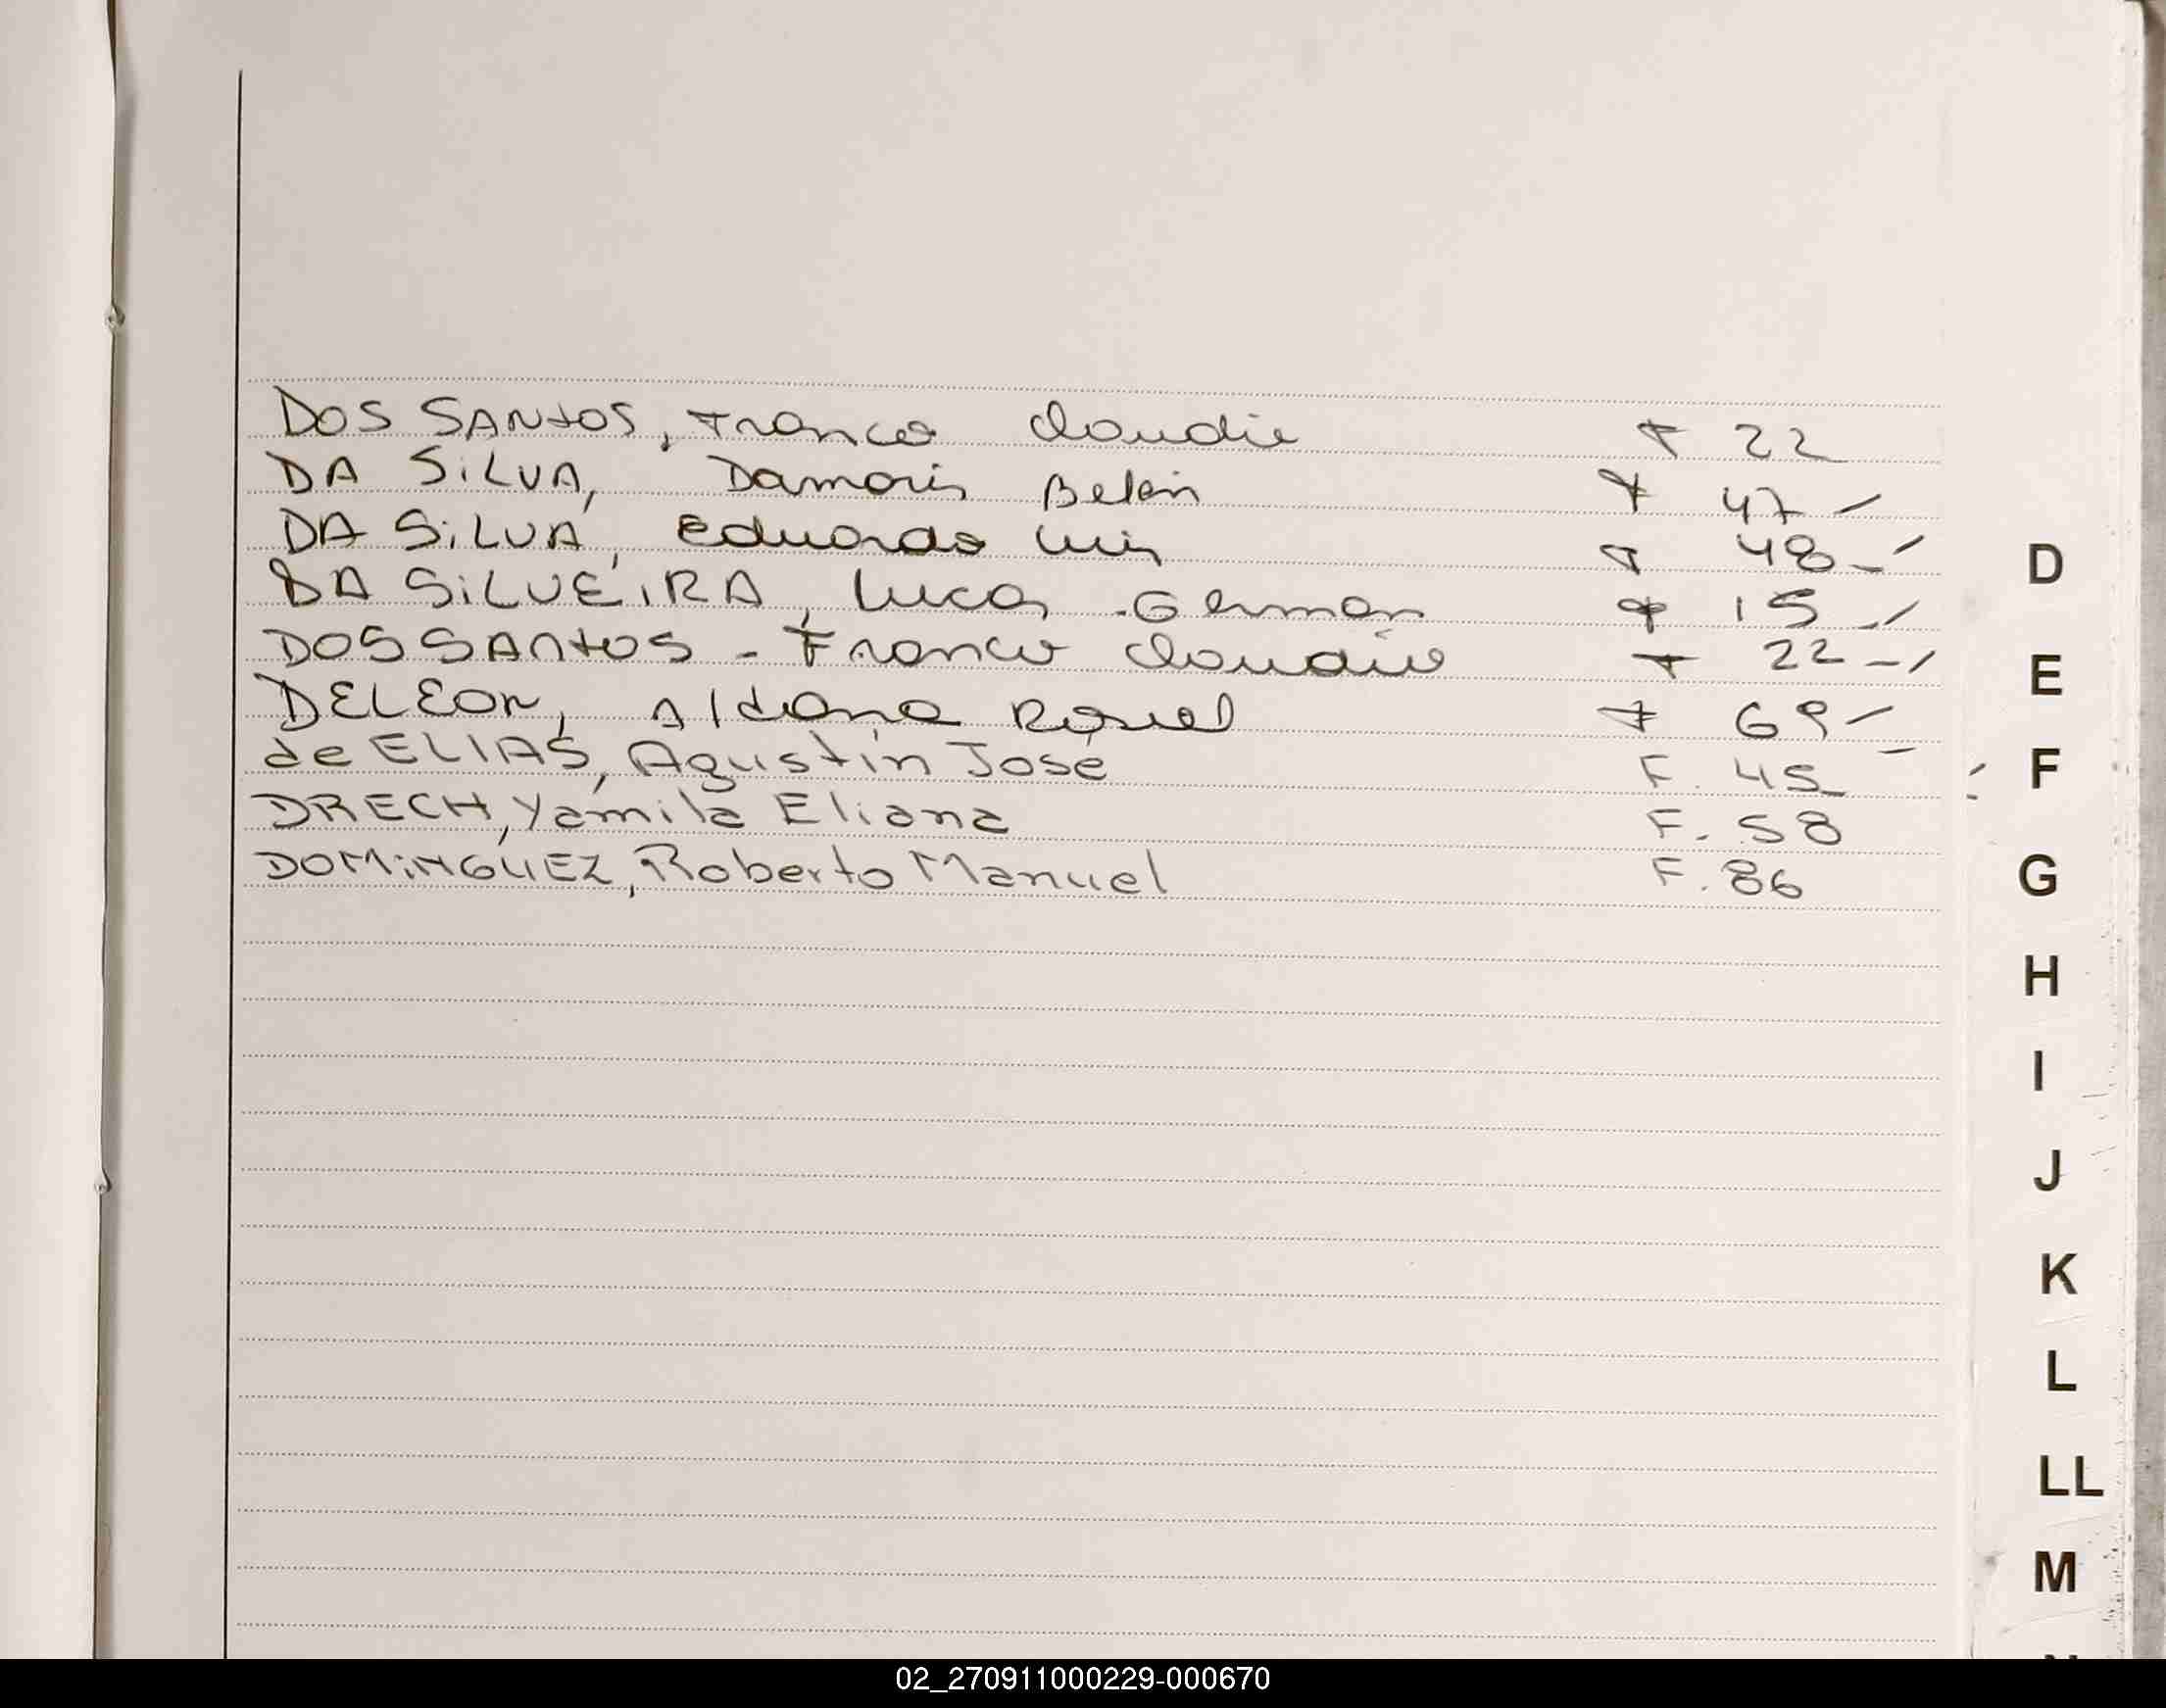 DOS SANTOS, Franco Claudio F 22
DA SiLVA, Damaris Belén F 47 -
DA SiLVA, Eduardo Luis F 48 -
DA SiLVEiRA, Lucas German F 15 -
DOS SANTOS - Franco Claudio F 22 -
DELEON, Aldana Raquel F 69 -
de ELIAS, Agustín José F. 45
DRECH, Yamila Eliana F. 58
DOMiNGUEZ, Roberto Manuel F. 86
D
E
F
G
H
I
J
K
L
LL
M
02_270911000229-000670